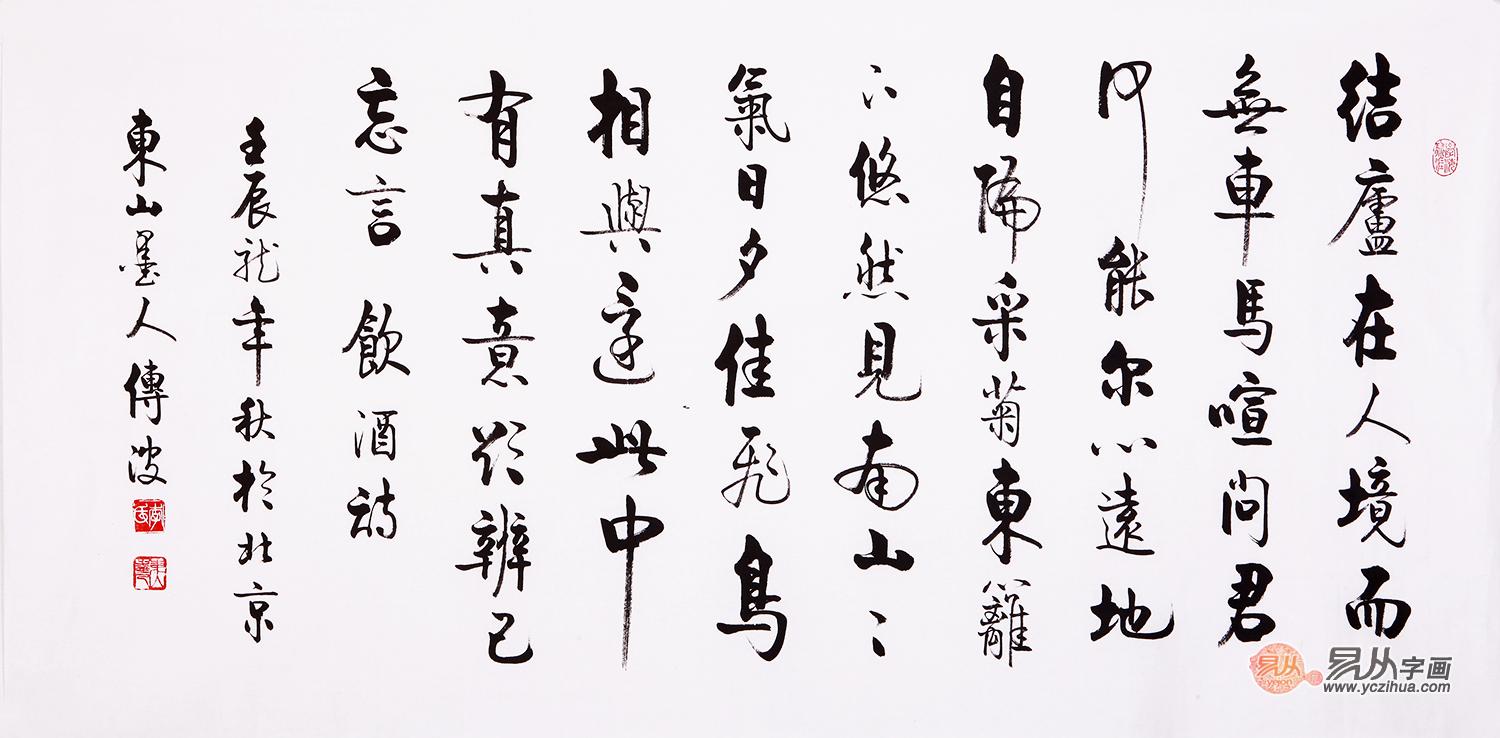 结廬在人境而
無車馬喧问君
何能尔心遠地
自偏采菊東籬
下悠然見南山〻
氣日夕佳飛鳥
相與還此中
有真意欲辨已
忘言 飲酒詩
壬辰龍年秋於北京
東山墨人傳波
易从
易从字画
www.yczihua.com